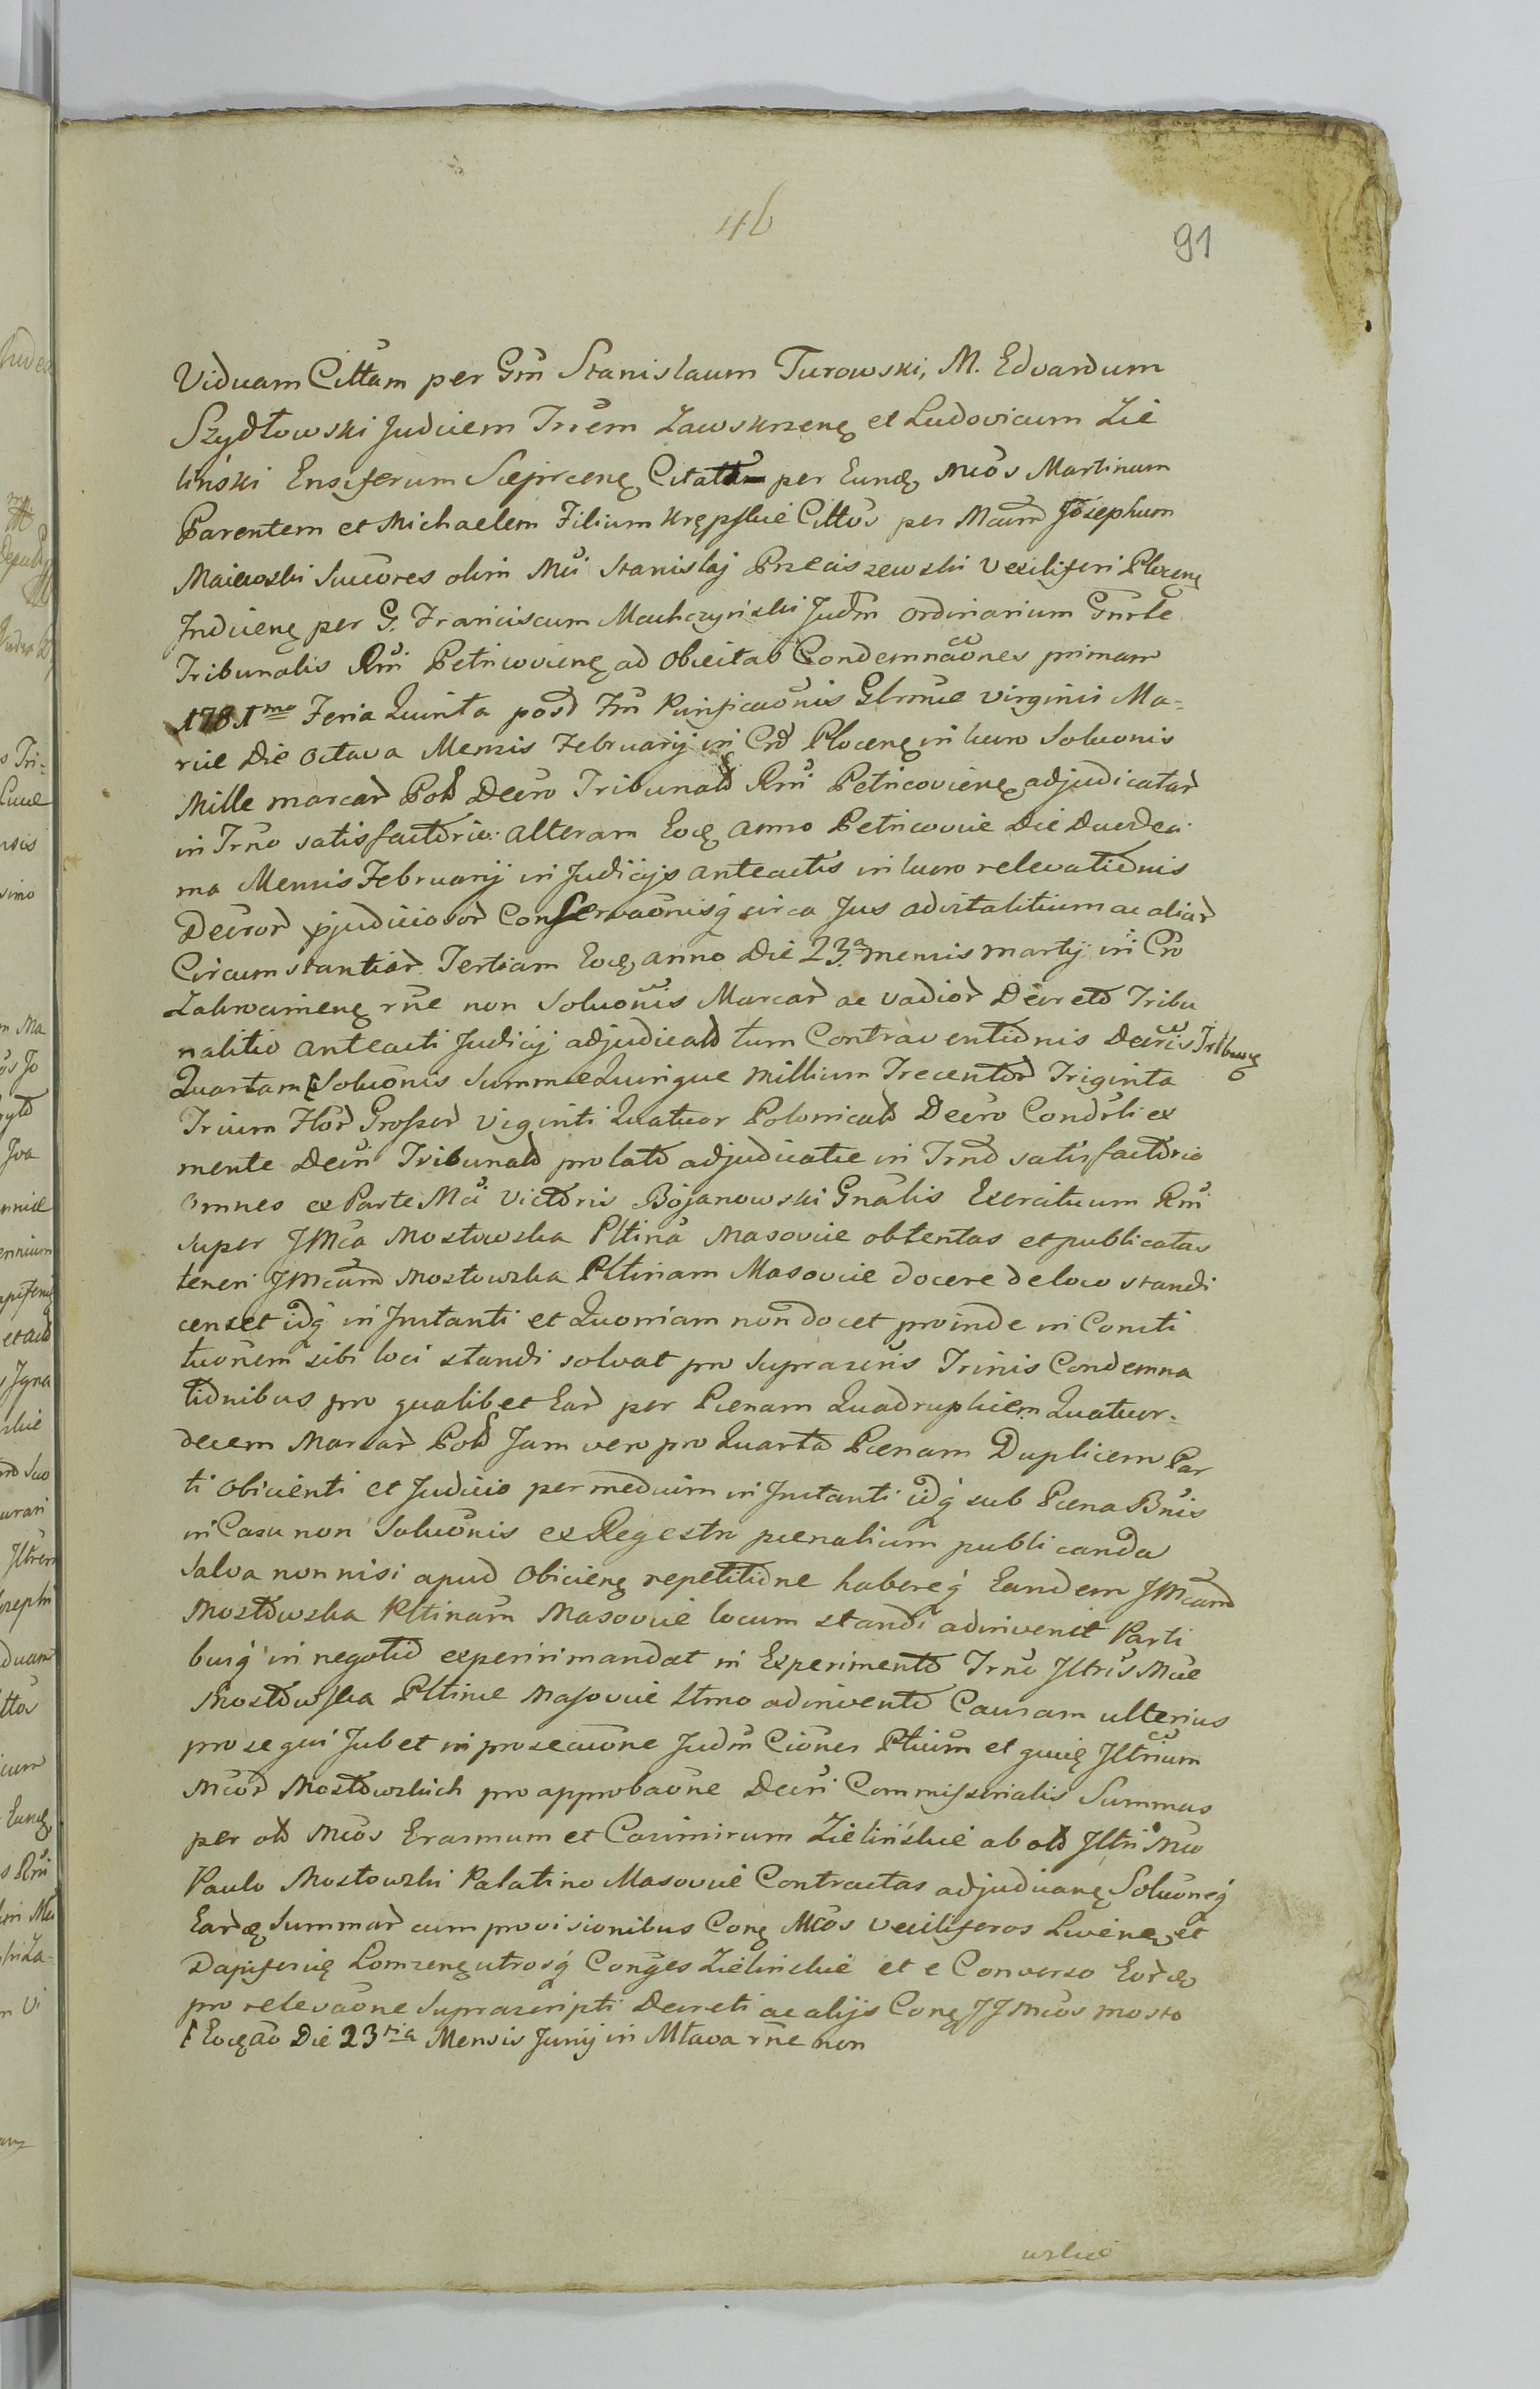 46
91
Viduam Cittam per Gm Stanislaum Turowski, M. Edvardum
Szydłowski Judicem Trrem Zawskrzenę et Ludovicum Zie
liński Ensiferum Sieprcenę Citatt per Eundę Mcos Martinum
Parentem et Michaelem Filium Krępskie Cittos per Mcum Josephum
Maiewski Succores olim Mci Stanislaj Przeciszewski Vexiliferi Plocenę
Inducenę per G. Franciscum Machczyński Judm Ordinarium Gnrłe
Tribunalis Rni Petricovienę ad Obicitas Condemnaones primam
1781mo Feria Quinta post Fm Purificaonis Glrmæ Virginis Ma=
riæ Die Octava Mensis Februarij in Cd Plocenę in luco Soluonis
Mille marcar Pold Decro Tribunald Rni Petricovienę adjudicatar
in Trno satisfactorio: alteram Eocę anno Petricoviæ Die Duodeci
ma Mensis Februarij in Judicijs anteactis in luco relevationis
Decror pjudiciosor Conservaonisq circa Jus advitalitium ac aliar
Circumstantiar Tertiam Eocę anno Die 23a mensis Martij in Cro
Zakrocimenę rne non Soluonis Marcar ac vadior Decreto Tribu
nalitio anteacti Judicij adjudicatd tum Contraventionis Decris Tribunę
Quartam Soluonis Summæ Quinque Millium Trecentor Triginta
Trium Flor Grosser Viginti Quatuor Polonicald Decro Condrli ex
mente Decri Tribunald prolato adjudicatæ in Trno satisfactorio
Omnes ex Parte Mci Victoris Bojanowski Gnalis Exercituum Rni
super JMca Mostowska Pltina Masoviæ obtentas et publicatas
teneri JMcam Mostowska Pltinam Masoviæ docere de loco standi
censet idq in Instanti et Quoniam non docet proinde in Consti
tuonem sibi loci standi solvat pro Suprascris Trinis Condemna
tionibus pro qualibet Ear per Pænam Quadruplicem Quatuor=
decem Marcar Pold Jam vero pro Quarta Pænam Duplicem Par
ti Obicienti et Judicio per medium in Instanti idq sub Pæna Bnis
in Casu non Soluonis ex Regestro pœnalium publicanda
Salva non nisi apud Obicienę repetitione habereq Eandem JMcam
Mostowska Pltinam Masoviæ locum standi adinvenit Parti
busq in negotio experiri mandat in Experimento Trno Jltris Mcæ
Mostowska Pltinæ Masoviæ Ltrno adinvento Causam ulterius
prosequi Jubet in prosecuone Judm Ciones Ptium et quię Jltrium
Mcor Mostowskich pro approbaone Decri Commissorialis Summas
per old Mcos Erasmum et Casimirum Zielińskie ab old Jltri Mco
Paulo Mostowski Palatino Masoviæ Contractas adjudicanę Soluoneq
Eardę Summar cum provisionibus Conę Mcos vexiliferos Livienę et
Dapiferię Lomzenę utrosq Conges Zielinskie et e Converso Eordę
pro relevaone Suprascripti Decreti ac alijs Conę JJMcos Mosto
Eocę ao Die 23tia Mensis Junij in Mława rne non
wskie